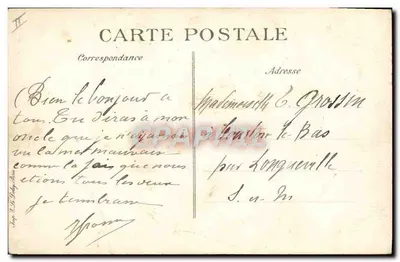 II
CARTE POSTALE
Correspondance
Adresse
Bien le bonjour a
tous. Tu diras a mon
oncle que je n'ayant
vu la mer mauvais
comm la fois que nous
etions tous les deux
je tembrasse
Yvonne
Mademoiselle C. Grossin
le Bas
par Longueville
S. et M.